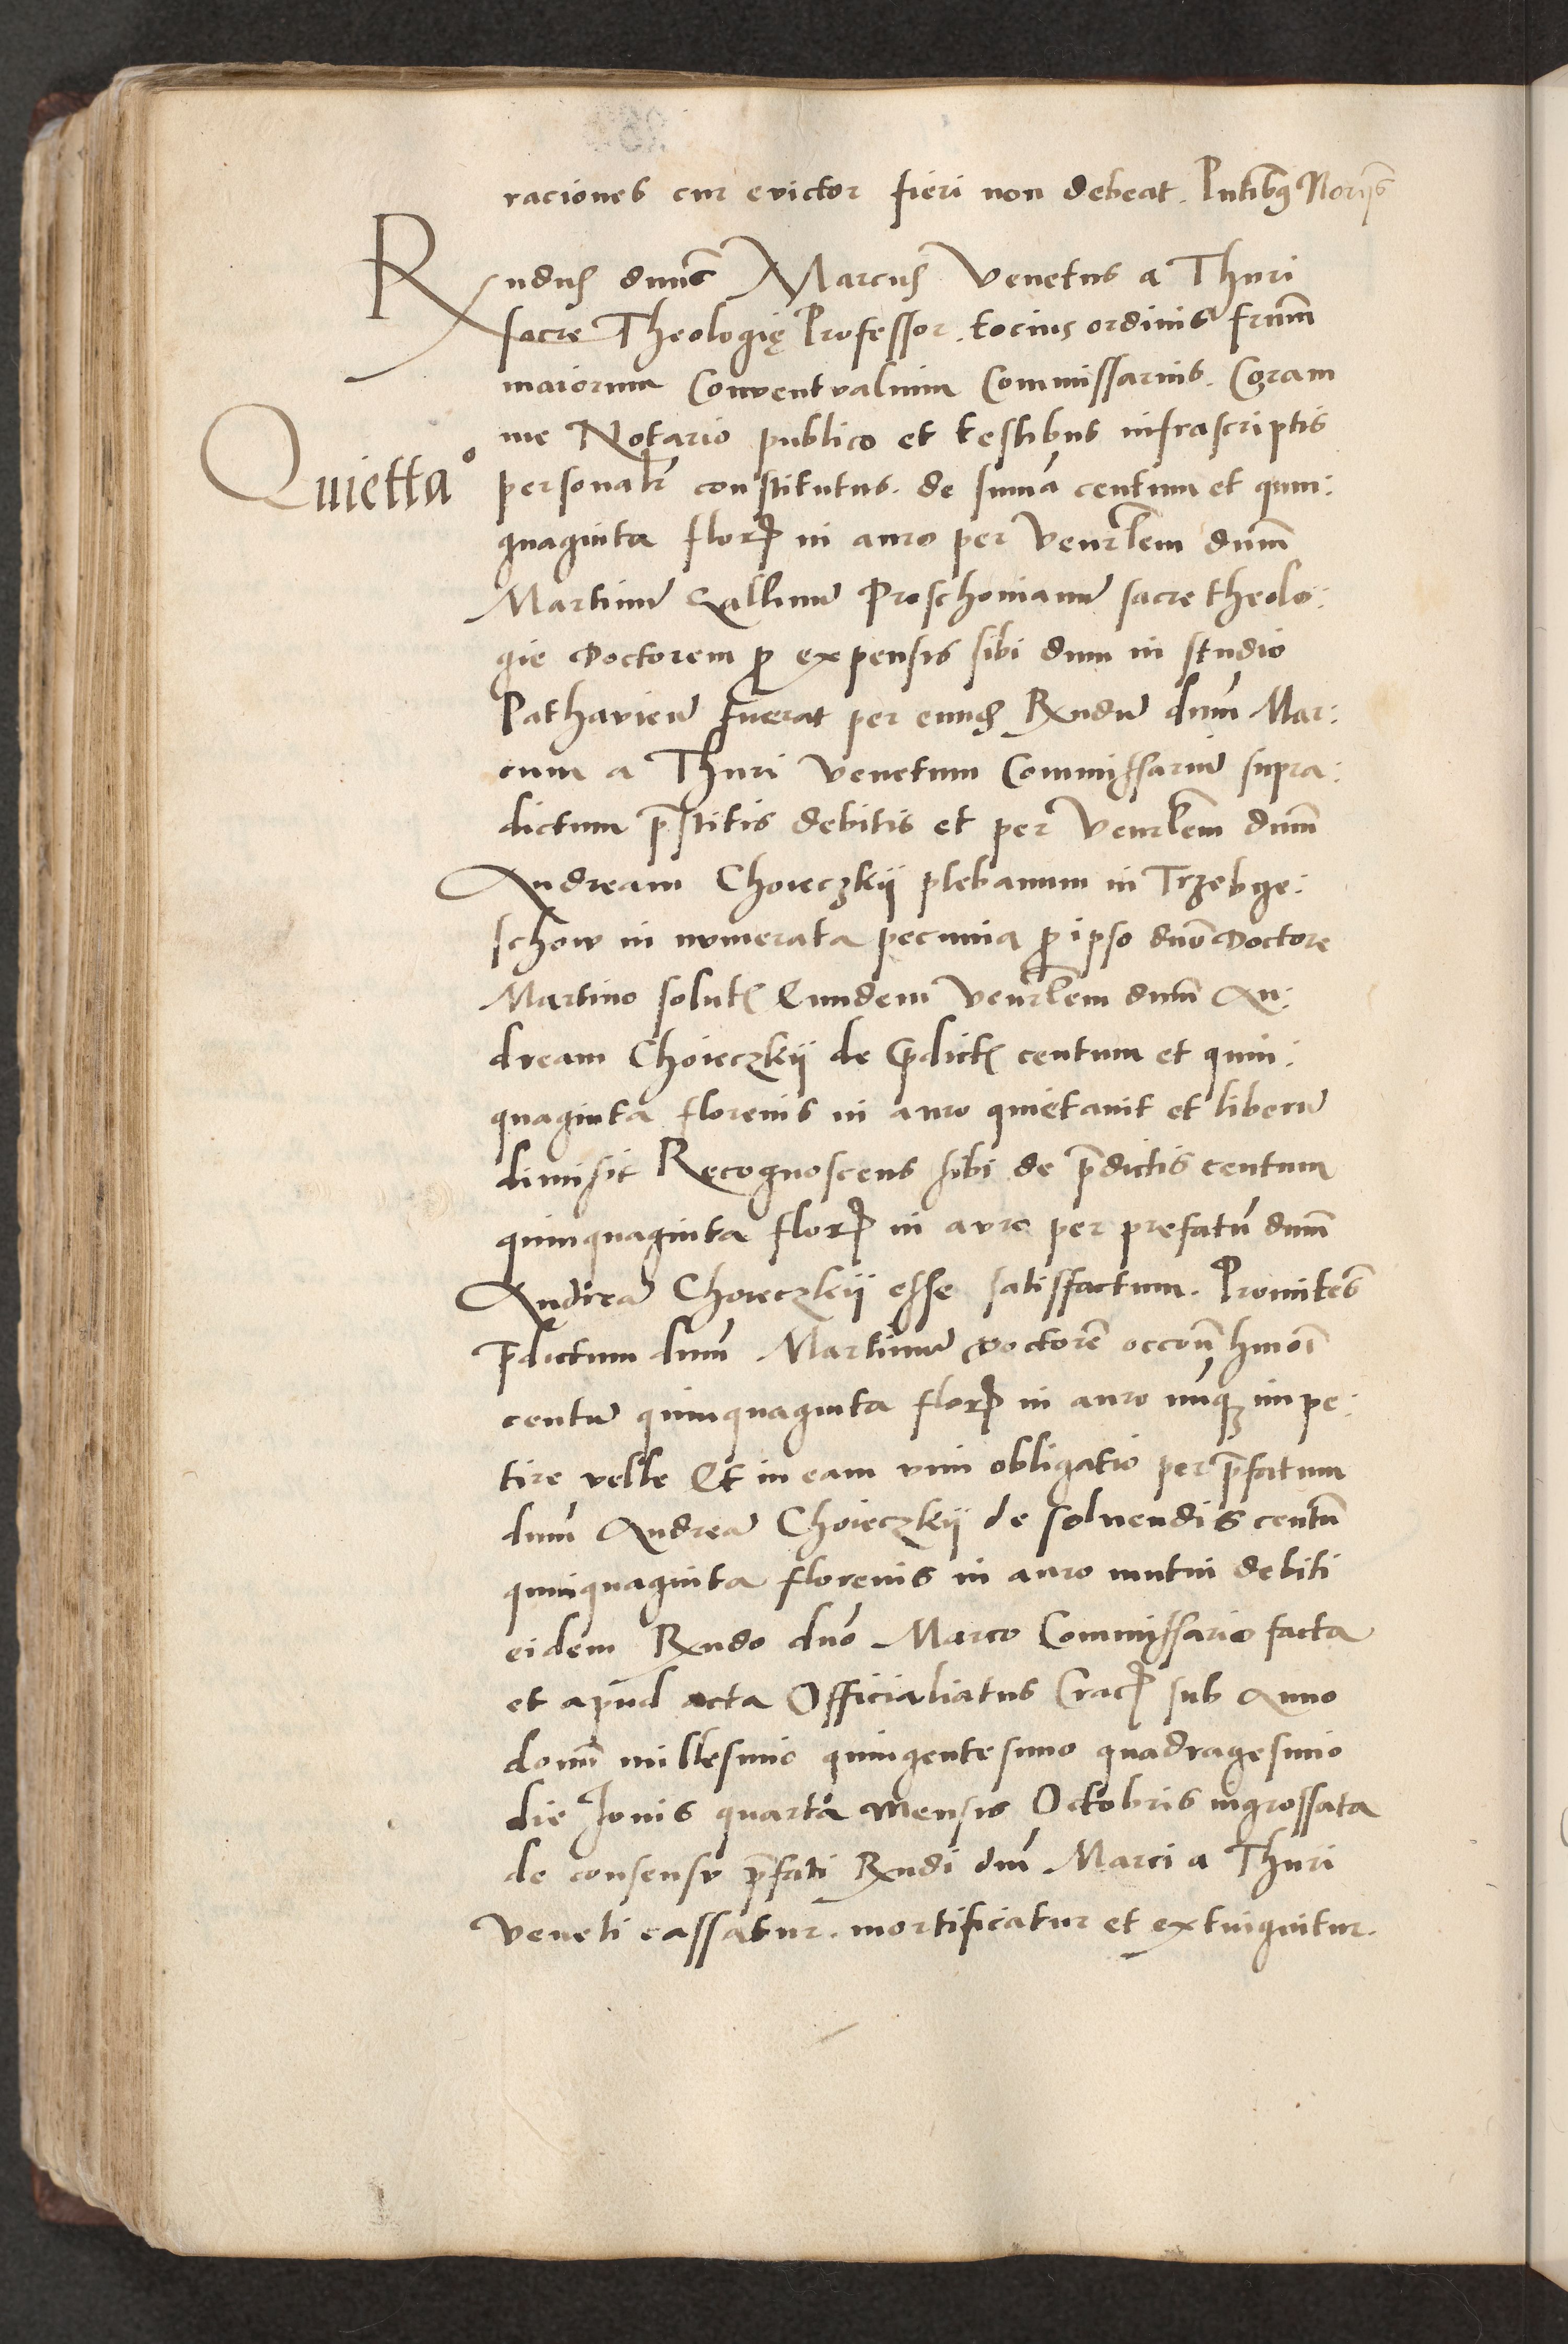 raciones cur evictor fieri non debeat. Pntibus Norijs
Rndus dnus Marcus Venetus a Thuri
sacre Theologię Professor. tocius ordinis frum
maiorum Conventvalium Commissarius. Coram
me Notario publico et testibus infrascriptis
Quietta°
personalr constitutus. de suma centum et quin:
quaginta flor in auro per Venrlem dnum
Martinu Gallinu Proschovianu sacre theolo:
gie Doctorem p expensis sibi dum in studio
Pathavien fuerat per eund Rndu dnm Mar:
cum a Thuri Venetum Commissariu supra:
dictum pstitis debitis et per Venrlem dnum
Andream Choieczkij plebanum in Trzebge:
schow in numerata pecunia p ipso dno Doctore
Martino solut Eundem Venrlem dnum An:
dream Choieczkij de pdict centum et quin:
quaginta florenis in auro quietavit et liberu
dimisit Recognoscens sibi de pdictis centum
quinquaginta flor in avro per prefatu dnum
Andrea Choieczkij esse satisfactum. Promites
pdictum dnm Martinu Doctore occone hmoi
centu quinquaginta flor in auro nuq impe:
tire velle Et in eam vim obligatio per pfatum
dnm Andrea Choieczkij de solvendis centu
quinquaginta florenis in auro mutui debiti
eidem Rndo dno Marco Commissario facta
et apud acta Officialiatus Crac sub Anno
domi millesimo quingentesimo quadragesimo
die Jouis quarta Mensis Octobris ingrossata
de consensv pfati Rndi dni Marci a Thuri
Veneti cassatur. mortificatur et extinguitur.